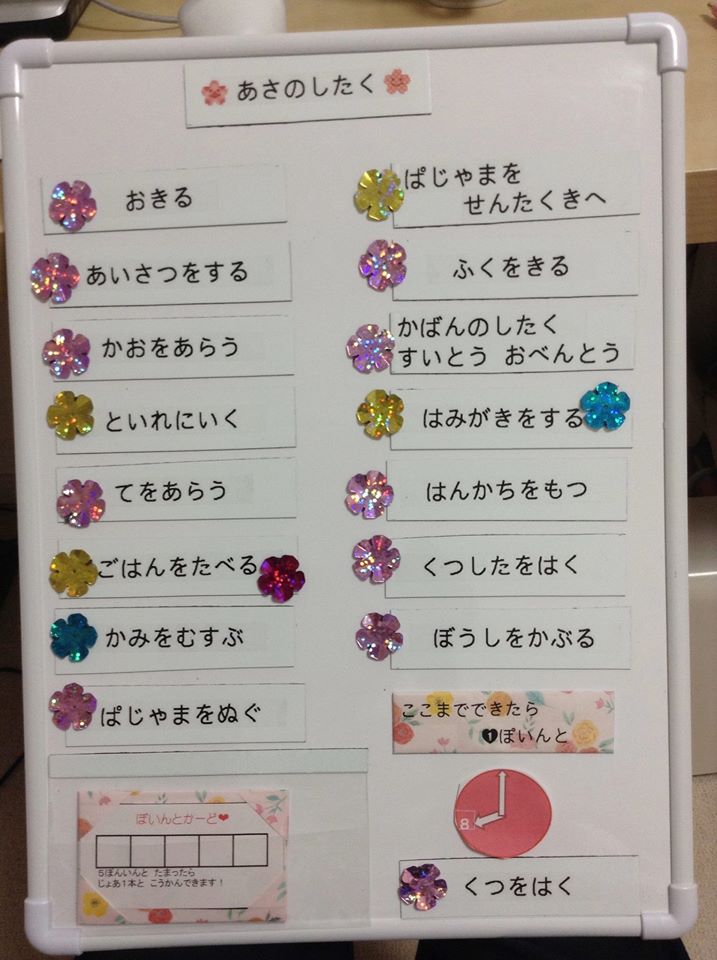 あさのしたく
おきる
あいさつをする
かおをあらう
といれにいく
てをあらう
ごはんをたべる
かみをむすぶ
ぱじゃまをぬぐ
ぱじゃまを
せんたくきへ
ふくをきる
かばんのしたく
すいとう おべんとう
はみがきをする
はんかちをもつ
くつしたをはく
ぼうしをかぶる
ここまでできたら
❶ぽいんと
8
くつをはく
ぽいんとかーど❤
5ぽんいんと たまったら
じょあ1本と こうかんできます!